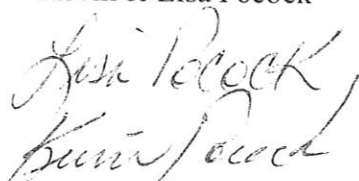 & Lisa Pocock
Lisa Pocock
Kevin Pocock